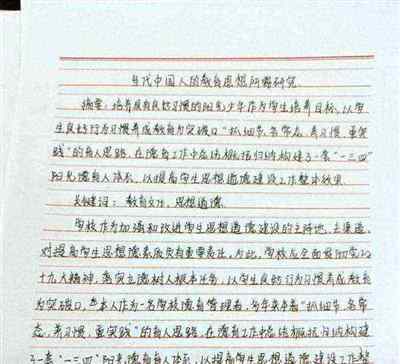 当代中国人的教育思想问题研究
摘要：培养良好行为习惯的阳光少年作为学生培养目标，以学
生良好行为习惯养成教育为突破口"抓细节、名常态、养习惯、重实
践"的育人思路，在德育工作中总结概括归纳构建了一套"一三四"
阳光德育人体系，以提高学生思想道德建设工作整体效果。
关键词：教育文化、思想道德
学校作为加强和改进学生思想道德建设的主阵地、主渠道，
对提高学生思想道德素质至有重要意义，为此，学校应全面贯彻党的
十九大精神，落实立德树人根本任务，以学生良好行为习惯养成教育
为突破口。本人作为一名学校德育管理者，多年来本着"抓细节、名常
态、养习惯、重实践"的育人思路，在德育工作中总结概括归纳构建
了一套"一三四"阳光德育人体系，以提高学生思想道德建设工作整